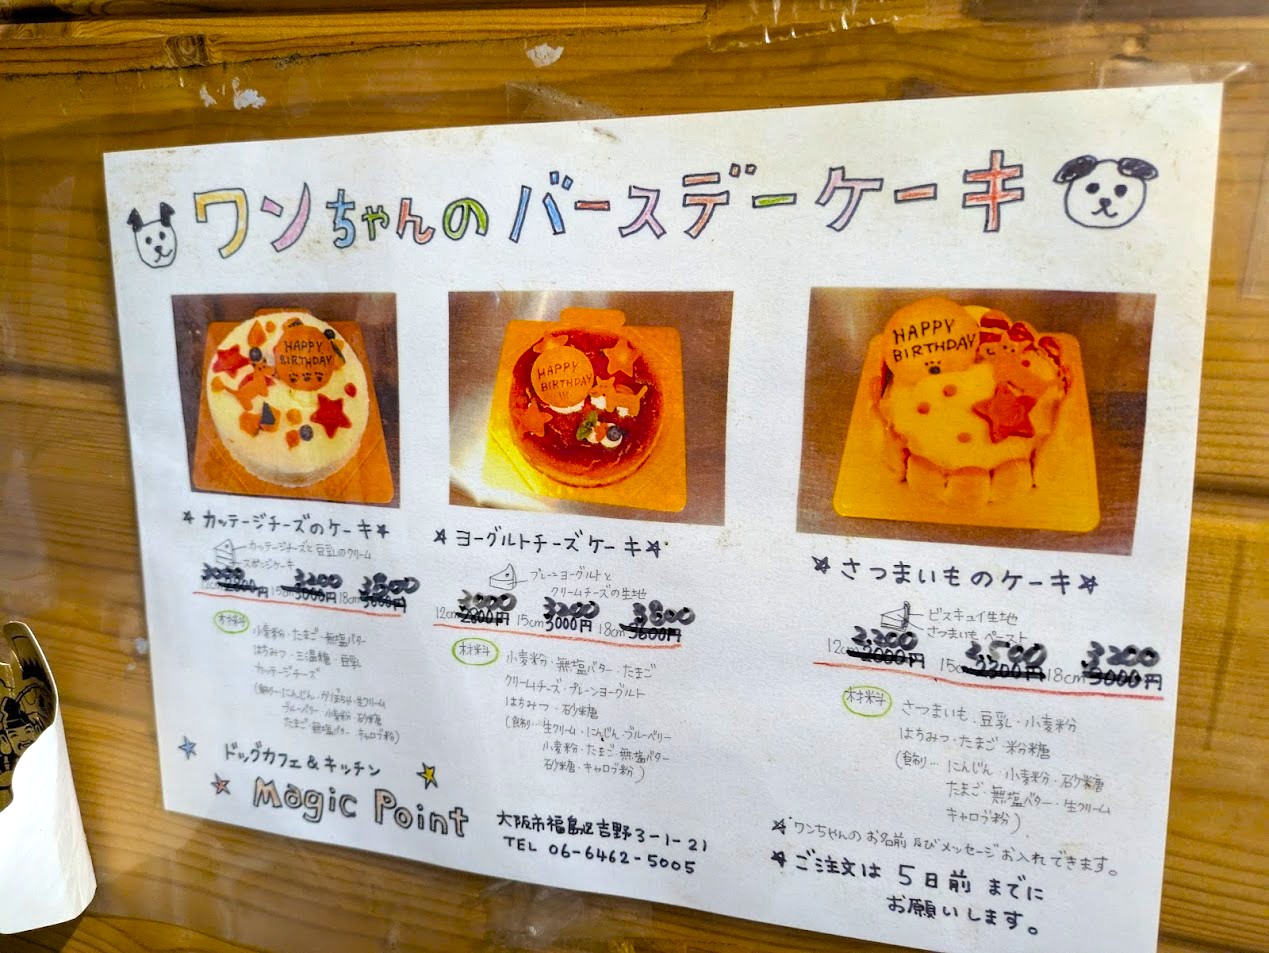 ワンちゃんのバースデーケーキ
HAPPY
BIRTHDAY
HAPPY
BIRTHDAY
!!!
HAPPY
BIRTHDAY
★カッテージチーズのケーキ★
カッテージチーズと豆乳のクリーム
スポンジケーキ
3000 3200 3800
15cm 3000円 18cm
材料
小麦粉・たまご・無塩バター
はちみつ・三温糖・豆乳
カッテージチーズ
(飾り…にんじん・かぼちゃ・生クリーム
ブルーベリー・小麦粉・砂糖
たまご・無塩バター・キャロブ粉)
★ヨーグルトチーズケーキ★
プレーンヨーグルトと
クリームチーズの生地
3000 3200 3800
12cm 2800円 15cm 3000円 18cm 3600円
材料
小麦粉・無塩バター・たまご
クリームチーズ・プレーンヨーグルト
はちみつ・砂糖
(飾り…生クリーム・にんじん・ブルーベリー
小麦粉・たまご・無塩バター
砂糖・キャロブ粉)
★さつまいものケーキ★
ビスキュイ生地
さつまいもペースト
2,200 2,500 3200
12cm 2000円 15cm 2300円 18cm 3000円
材料
さつまいも・豆乳・小麦粉
はちみつ・たまご・粉糖
(飾り…にんじん・小麦粉・砂糖
たまご・無塩バター・生クリーム
キャロブ粉)
ドッグカフェ&キッチン
Magic Point
大阪市福島区吉野3-1-21
TEL 06-6462-5005
★ワンちゃんのお名前及びメッセージお入れできます。
★ご注文は5日前までに
お願いします。